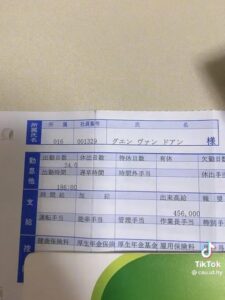 所属氏名
所属 社員番号 氏名
016 001329 グエン ヴァン ドアン 様
勤怠他
出勤日数 休出日数 特休日数 有休 欠勤日数
24.0
出勤時間 遅早時間 時間外手当 休出手
196:00
支給
出来高給
456,000
運転手当 能率手当 管理手当 作業長手当 特別手
健康保険料 厚生年金保険 厚生年金基金 雇用保険料
TikTok